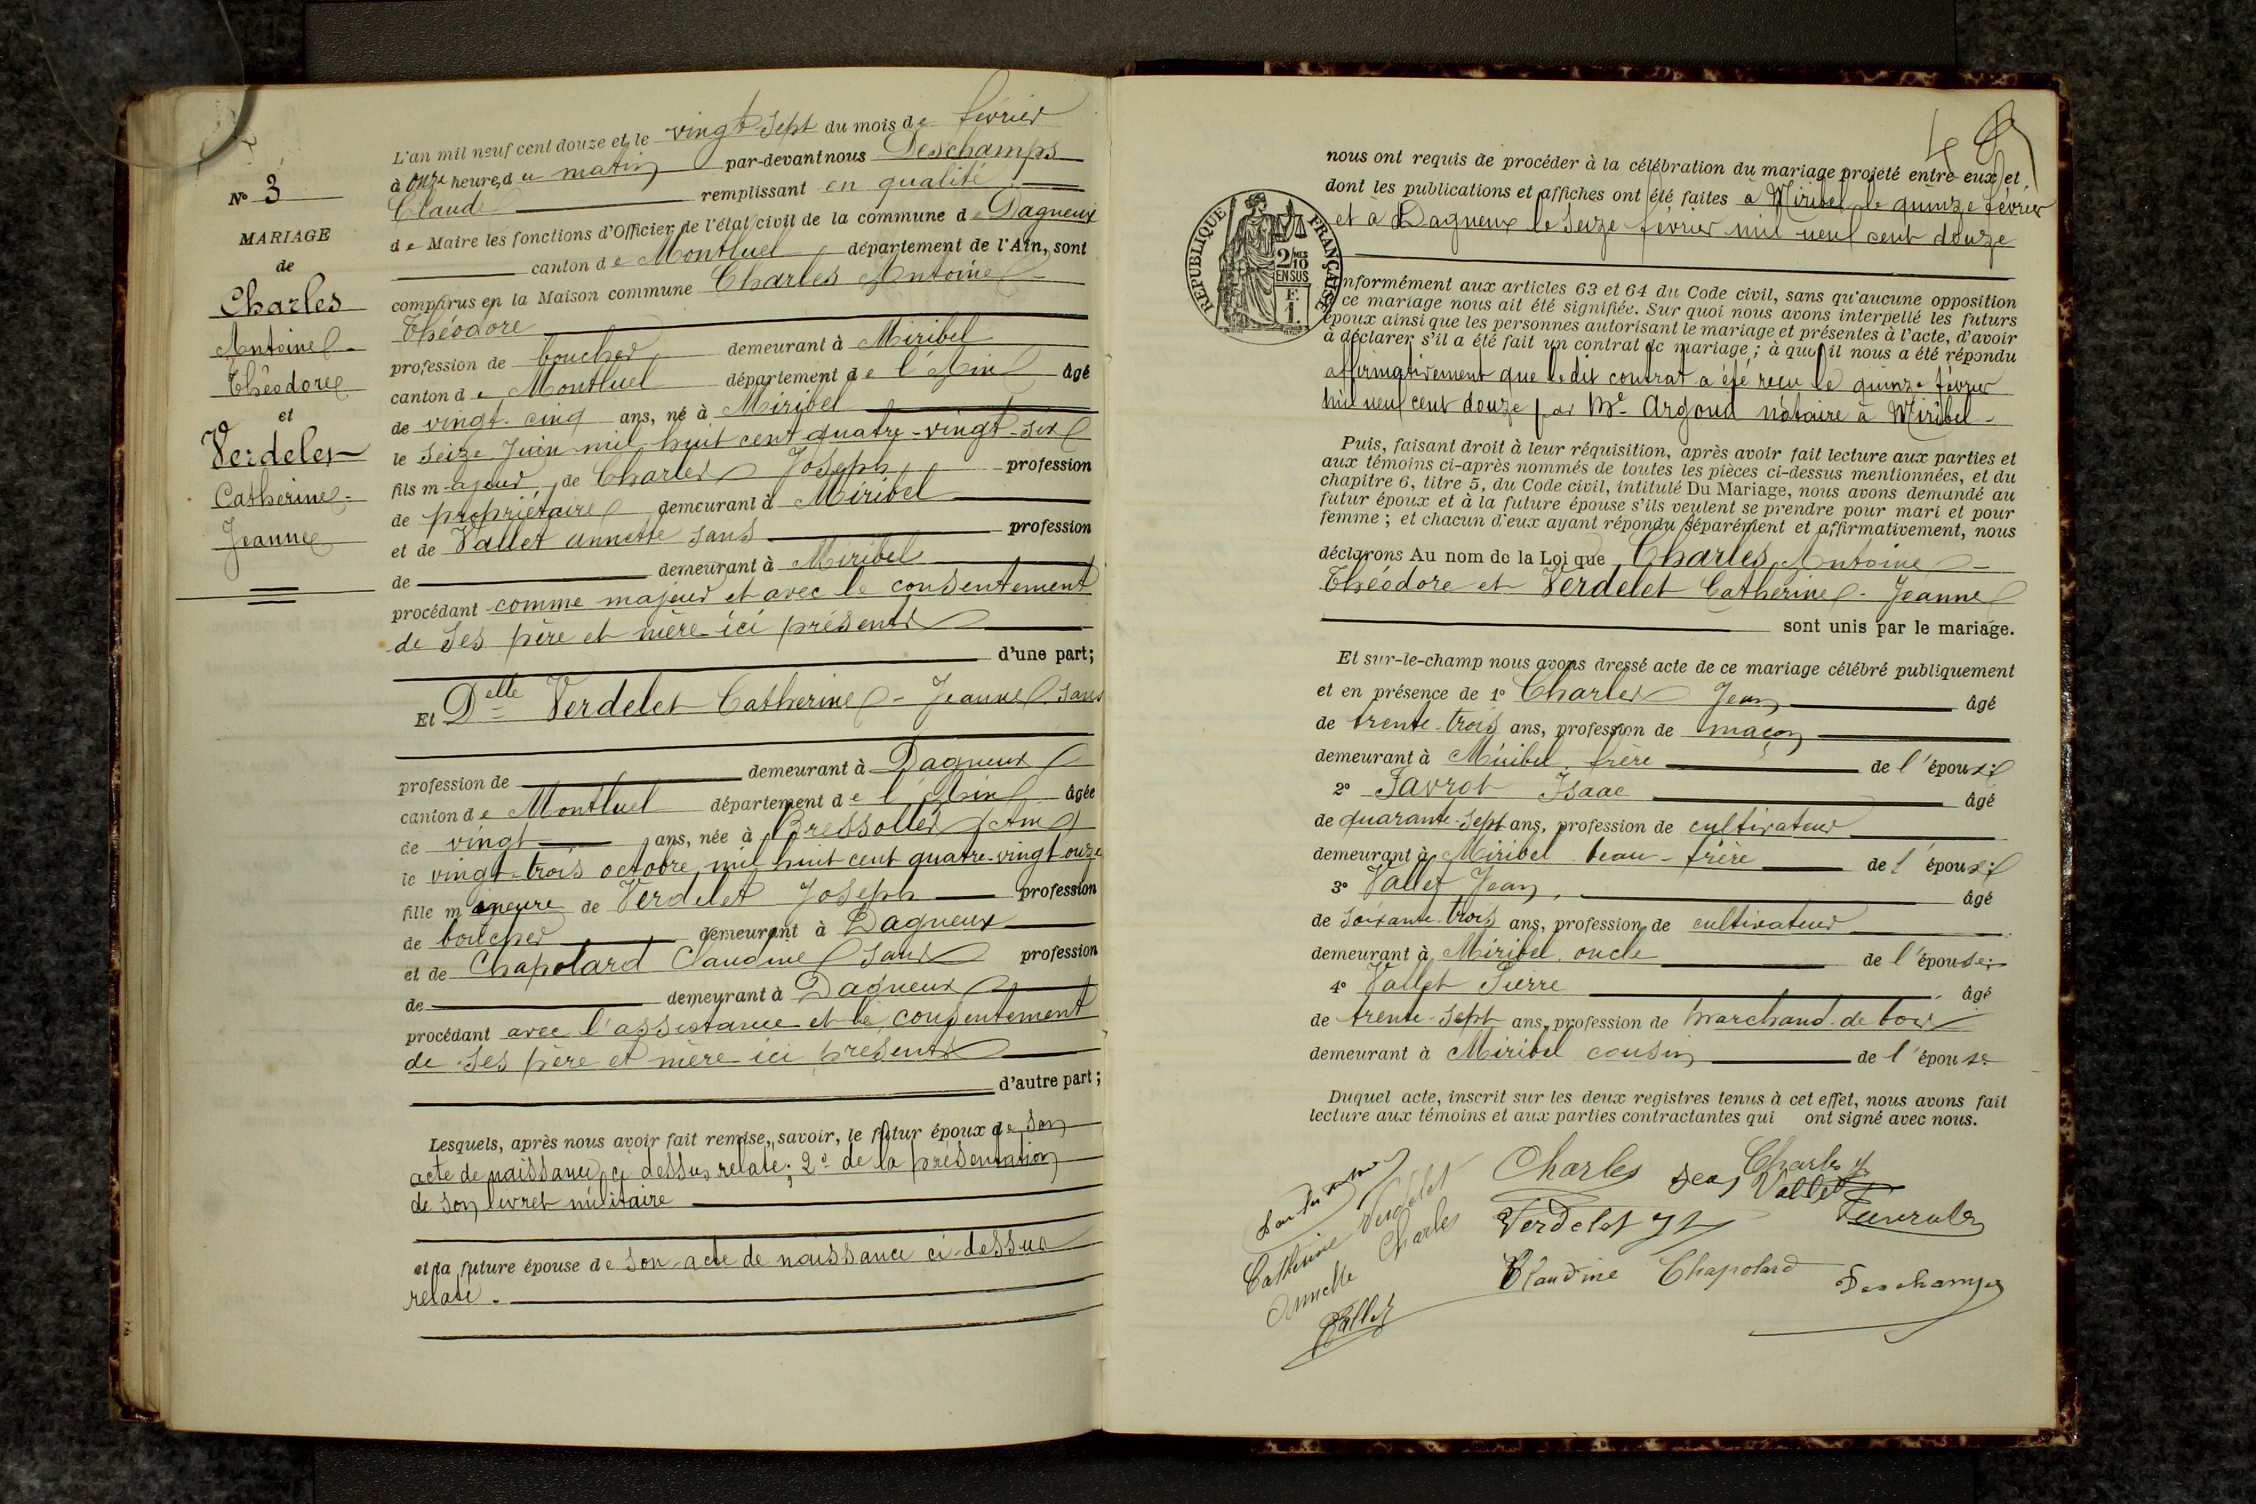 N° 3
MARIAGE
de
Charles
Antoine
Théodore
et
Verdelet
Catherine
Jeanne
L'an mil neuf cent douze et le vingt-sept du mois de février
à onze heures du matin par-devant nous Deschamps
Claude remplissant en qualité
de Maire les fonctions d'Officier de l'état civil de la commune de Dagneux
canton de Montluel département de l'Ain, sont
comparus en la Maison commune Charles Antoine
Théodore
profession de boucher demeurant à Miribel
canton de Montluel département de l'Ain âgé
de vingt-cinq ans, né à Miribel
le seize Juin mil huit cent quatre-vingt-six
fils majeur de Charles Joseph profession
de propriétaire demeurant à Miribel
et de Vallet Annette sans profession
de demeurant à Miribel
procédant comme majeur et avec le consentement
de ses père et mère ici présents
d'une part;
Et Delle Verdelet Catherine-Jeanne sans
profession de demeurant à Dagneux
canton de Montluel département de l'Ain âgée
de vingt ans, née à Bressolles (Ain)
le vingt-trois octobre mil huit cent quatre-vingt-onze
fille mineure de Verdelet Joseph profession
de boucher demeurant à Dagneux
et de Chapolard Claudine sans profession
de demeurant à Dagneux
procédant avec l'assistance et le consentement
de ses père et mère ici présents
d'autre part;
Lesquels, après nous avoir fait remise, savoir, le futur époux de son
acte de naissance ci dessus relaté; 2° de la présentation
de son livret militaire
et la future épouse de son acte de naissance ci-dessus
relaté.
nous ont requis de procéder à la célébration du mariage projeté entre eux et
dont les publications et affiches ont été faites à Miribel le quinze février
et à Dagneux le seize février mil neuf cent douze
RÉPUBLIQUE FRANÇAISE
2/10 MES
EN SUS
F.
1.
nformément aux articles 63 et 64 du Code civil, sans qu'aucune opposition
ce mariage nous ait été signifiée. Sur quoi nous avons interpellé les futurs
époux ainsi que les personnes autorisant le mariage et présentes à l'acte, d'avoir
à déclarer s'il a été fait un contrat de mariage; à quoi il nous a été répondu
affirmativement que le dit contrat a été reçu le quinze février
mil neuf cent douze par Me Argoud notaire à Miribel
Puis, faisant droit à leur réquisition, après avoir fait lecture aux parties et
aux témoins ci-après nommés de toutes les pièces ci-dessus mentionnées, et du
chapitre 6, titre 5, du Code civil, intitulé Du Mariage, nous avons demandé au
futur époux et à la future épouse s'ils veulent se prendre pour mari et pour
femme; et chacun d'eux ayant répondu séparément et affirmativement, nous
déclarons Au nom de la Loi que Charles Antoine
Théodore et Verdelet Catherine-Jeanne
sont unis par le mariage.
Et sur-le-champ nous avons dressé acte de ce mariage célébré publiquement
et en présence de 1° Charles Jean âgé
de trente-trois ans, profession de maçon
demeurant à Miribel frère de l'époux;
2° Favrot Isaac âgé
de quarante-sept ans, profession de cultivateur
demeurant à Miribel beau-frère de l'époux;
3° Vallet Jean, âgé
de soixante-trois ans, profession de cultivateur
demeurant à Miribel oncle de l'épouse;
4° Vallet Pierre âgé
de trente-sept ans, profession de marchand de bois
demeurant à Miribel cousin de l'épouse
Duquel acte, inscrit sur les deux registres tenus à cet effet, nous avons fait
lecture aux témoins et aux parties contractantes qui ont signé avec nous.
Charles Jean Charles
Vallet
Catherine Verdelet
Verdelet
Annette Charles
Claudine Chapolard
Deschamps
Vallet